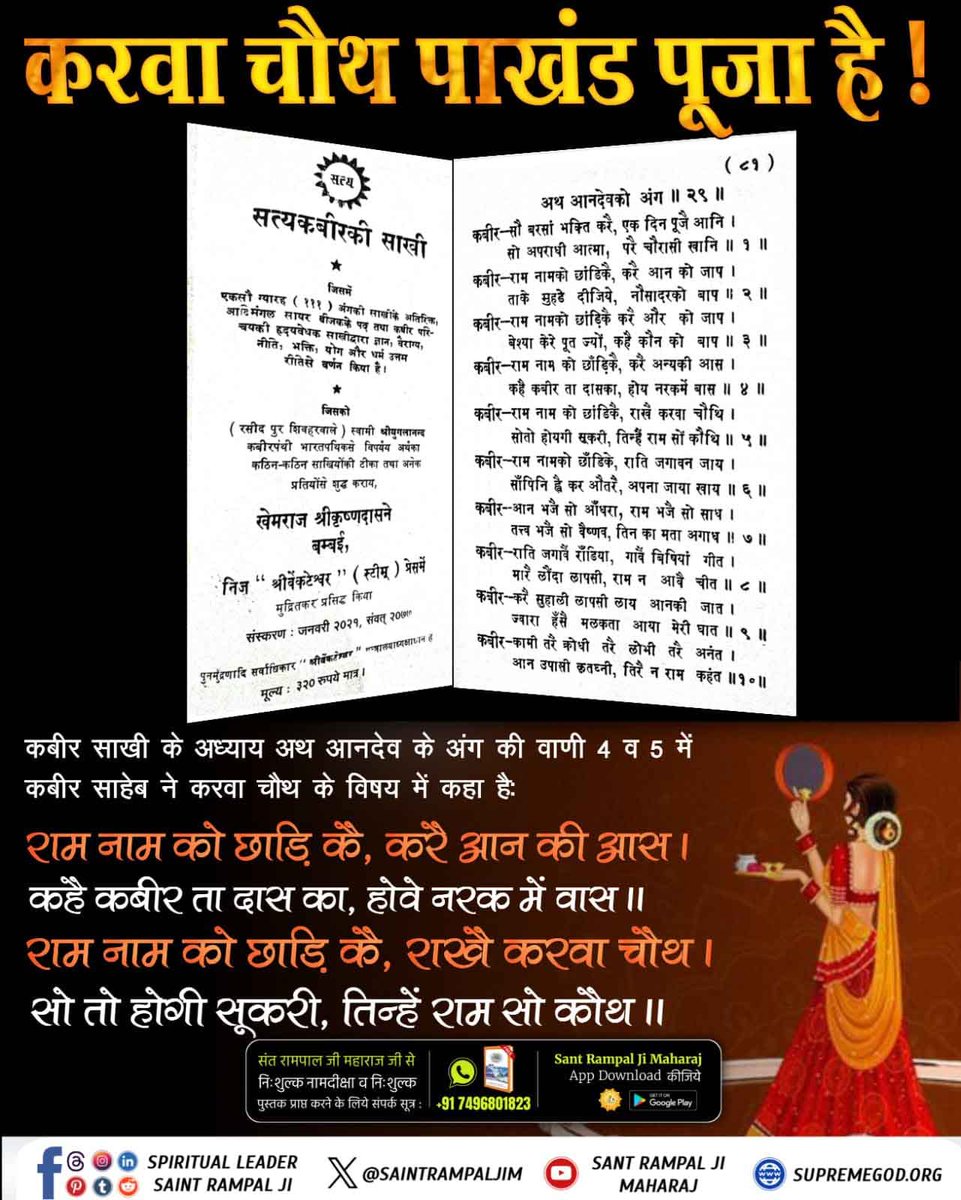 करवा चौथ पाखंड पूजा है !
सत्य
सत्यकबीरकी साखी
जिसमें
एकसौ ग्यारह ( १११ ) अंगकी साखीके अतिरिक्त,
आदिमंगल सायर बीजकके पद तथा कबीर परि-
चयकी हृदयवेधक साखीद्वारा ज्ञान, वैराग्य,
नीति, भक्ति, योग और धर्म उत्तम
रीतिसे वर्णन किया है।
जिसको
( रसीद पुर शिवहरवाले ) स्वामी श्रीयुगलानन्द
कबीरपंथी भारतपथिकसे विपर्यय अर्थका
कठिन-कठिन साखियोंकी टीका तथा अनेक
प्रतियोंसे शुद्ध कराय,
खेमराज श्रीकृष्णदासने
बम्बई,
निज " श्रीवेंकटेश्वर " ( स्टीम् ) प्रेसमें
मुद्रितकर प्रसिद्ध किया
संस्करण : जनवरी २०२१, संवत् २०७७
पुनर्मुद्रणादि सर्वाधिकार "श्रीवेंकटेश्वर"
मूल्य : ३२० रुपये मात्र।
( ८१ )
अथ आनदेवको अंग ॥ २९ ॥
कबीर–सौ बरसां भक्ति करै, एक दिन पूजै आनि ।
सो अपराधी आत्मा, परै चौरासी खानि ॥ १ ॥
कबीर–राम नामको छांडिकै, करै आन को जाप ।
ताके मुहडे दीजिये, नौसादरको बाप ॥ २ ॥
कबीर–राम नामको छांड़िकै करै और को जाप ।
बेश्या केरे पूत ज्यों, कहै कौन को बाप ॥ ३ ॥
कबीर–राम नाम को छाँड़िकै, करै अन्यकी आस ।
कहै कबीर ता दासका, होय नरकमें बास ॥ ४ ॥
कबीर–राम नाम को छांडिकै, राखै करवा चौथि ।
सोतो होयगी सूकरी, तिन्हैं राम सों कौथि ॥ ५ ॥
कबीर–राम नामको छाँडिके, राति जगावन जाय ।
साँपिनि ह्वै कर औतरै, अपना जाया खाय ॥ ६ ॥
कबीर–आन भजै सो आँधरा, राम भजै सो साध ।
तत्त्व भजै सो वैष्णव, तिन का मता अगाध ॥ ७ ॥
कबीर–राति जगावैं राँडिया, गावैं बिषियां गीत ।
मारै लौंदा लापसी, राम न आवै चीत ॥ ८ ॥
कबीर–करै सुहाली लापसी लाय आनकी जात ।
ज्वारा हँसै मलकता आया मेरी घात ॥ ९ ॥
कबीर–कामी तरै क्रोधी तरै लोभी तरै अनंत ।
आन उपासी कृतघ्नी, तिरै न राम कहंत ॥१०॥
कबीर साखी के अध्याय अथ आनदेव के अंग की वाणी 4 व 5 में
कबीर साहेब ने करवा चौथ के विषय में कहा है:
राम नाम को छाड़ि कै, करै आन की आस ।
कहै कबीर ता दास का, होवे नरक में वास ॥
राम नाम को छाड़ि कै, राखै करवा चौथ ।
सो तो होगी सूकरी, तिन्हें राम सो कौथ ॥
संत रामपाल जी महाराज जी से
निःशुल्क नामदीक्षा व निःशुल्क
पुस्तक प्राप्त करने के लिये संपर्क सूत्र :
+91 7496801823
Sant Rampal Ji Maharaj
App Download कीजिये
GET IT ON
Google Play
SPIRITUAL LEADER
SAINT RAMPAL JI
@SAINTRAMPALJIM
SANT RAMPAL JI
MAHARAJ
SUPREMEGOD.ORG